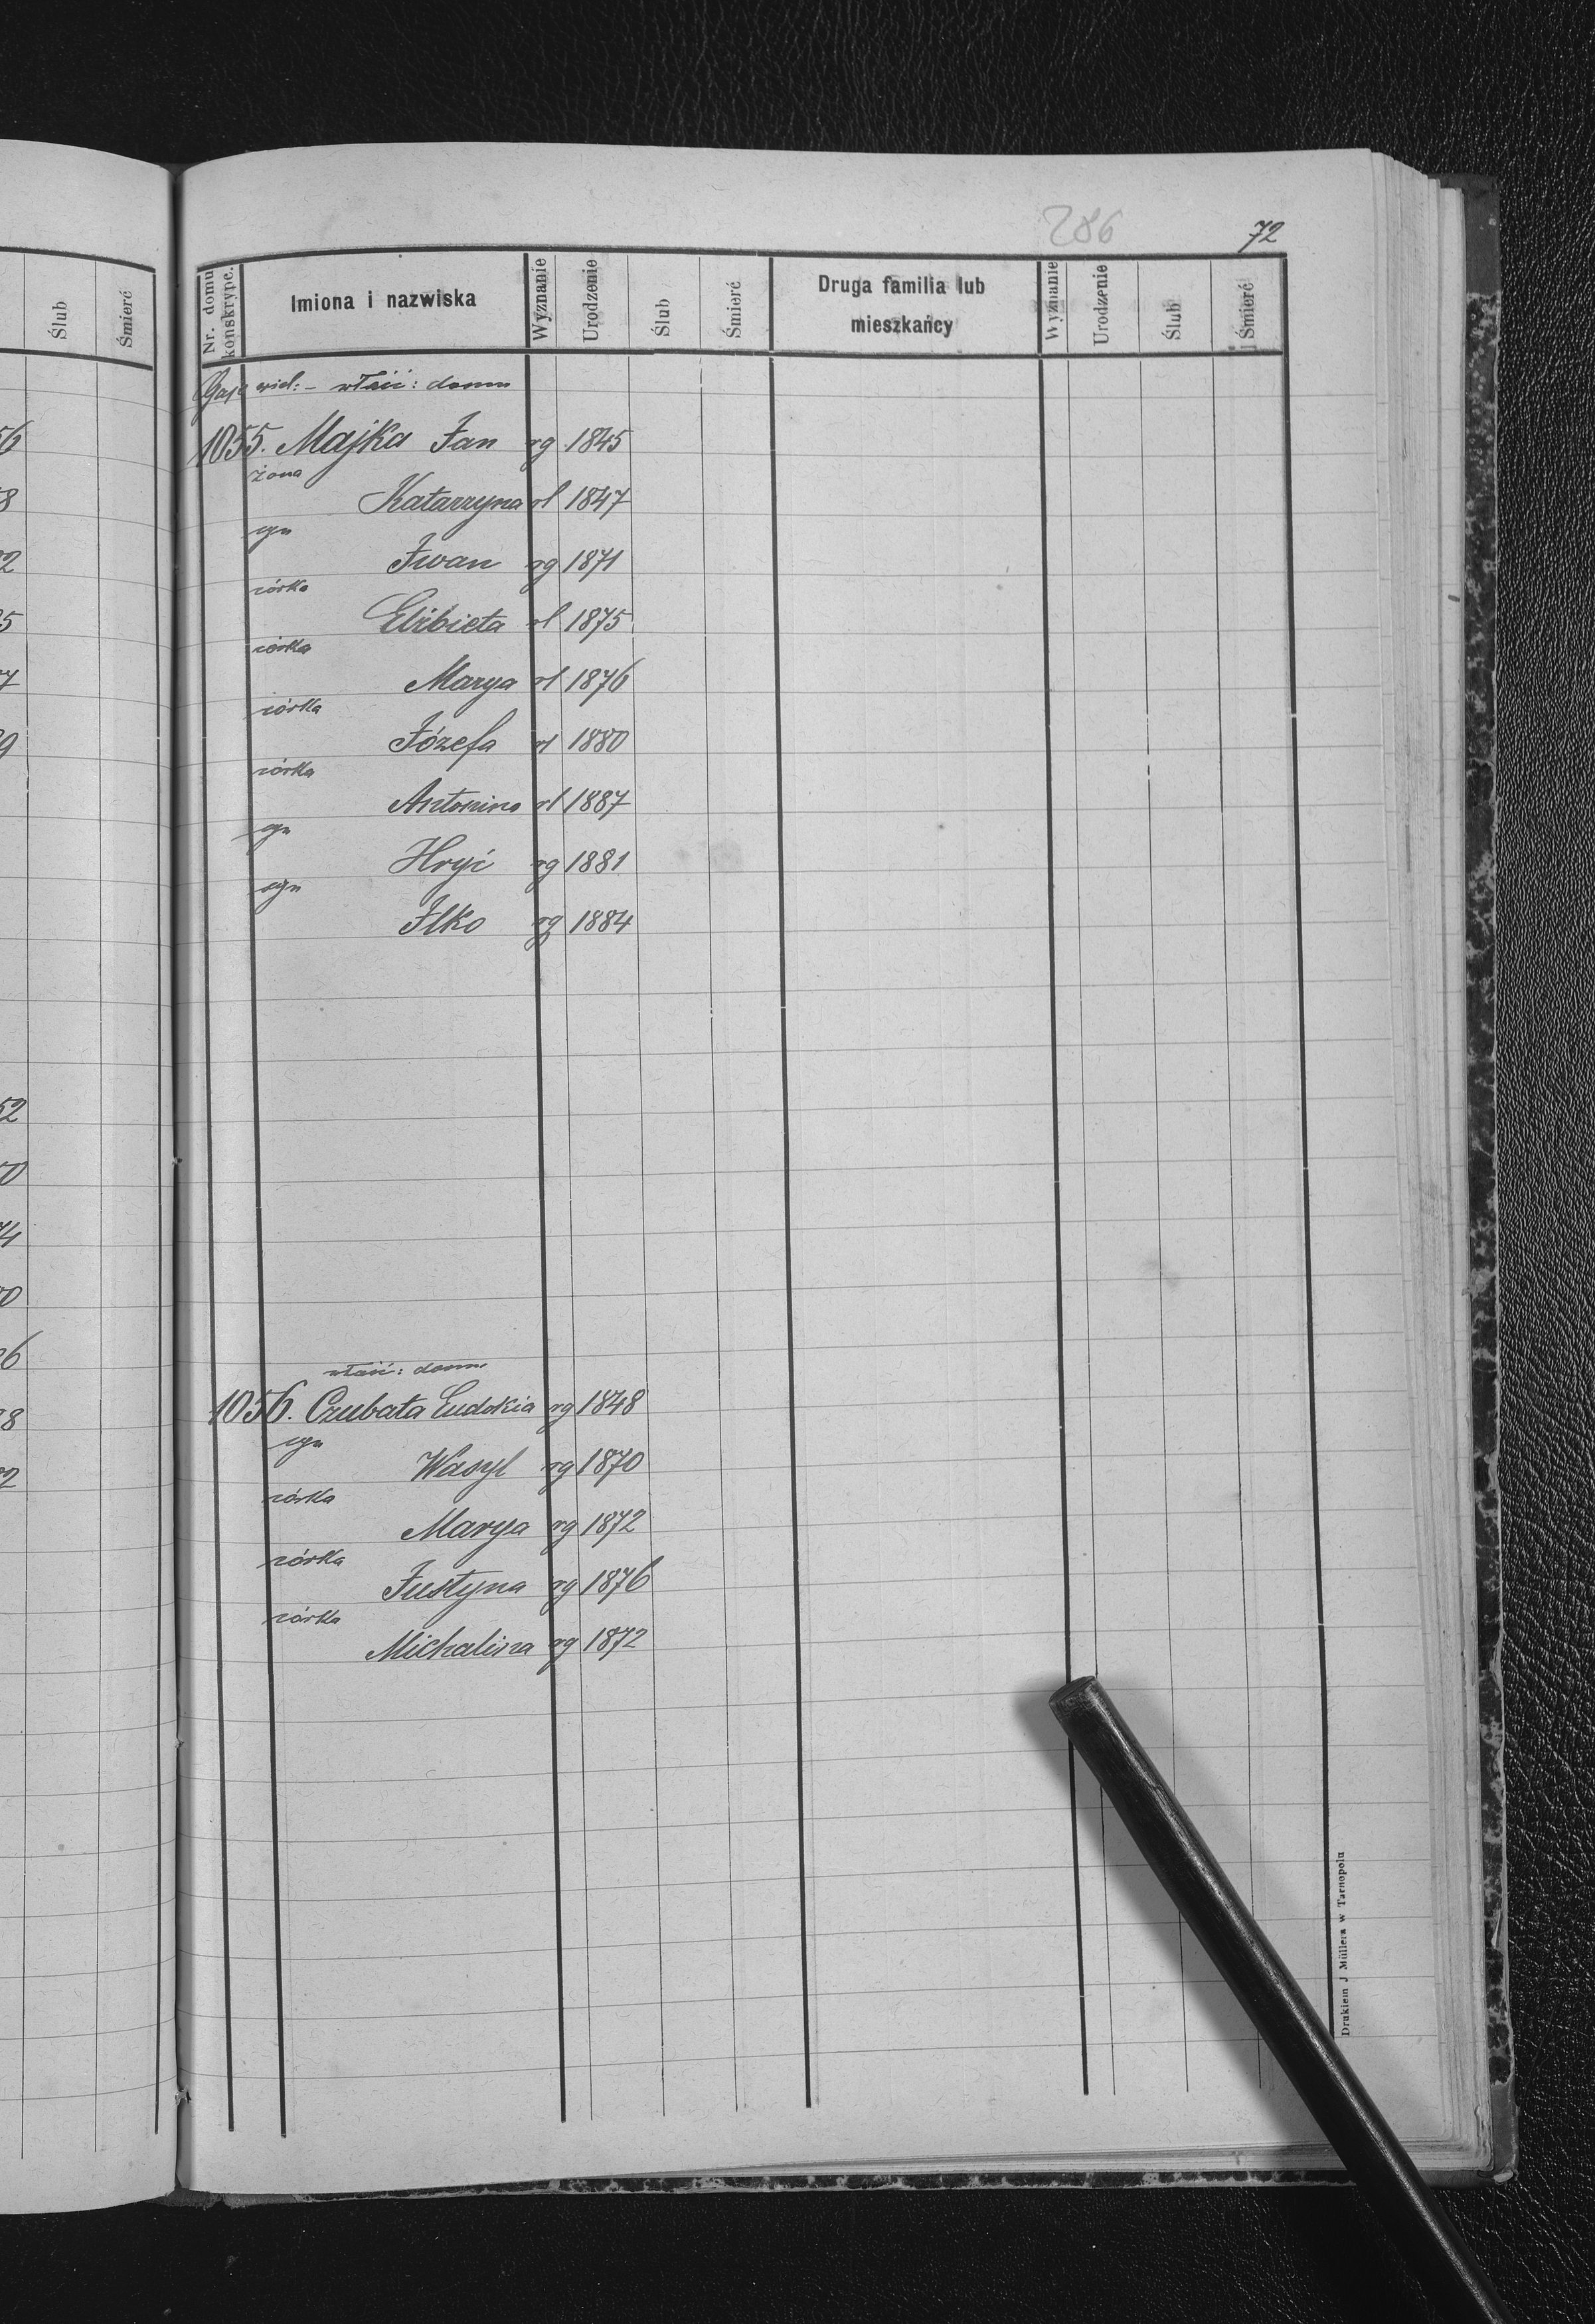 286 72
Ślub Śmierć
Nr. domu konskrypc. Imiona i nazwiska Wyznanie Urodzenie Ślub Śmierć Druga familia lub mieszkańcy Wyznanie Urodzenie Ślub Śmierć
Gaje wiel: – właść: domu
1055. Majka Jan rg 1845
żona
Katarzyna rl 1847
syn
Iwan rg 1871
córka
Elżbieta rl 1875
córka
Marya rl 1876
córka
Józefa rl 1880
córka
Antonina rl 1887
syn
Hryć rg 1881
syn
Ilko rg 1884
właść: domu
1056. Czubata Eudokia rg 1848
syn
Wasyl rg 1870
córka
Marya rg 1872
córka
Justyna rg 1876
córka
Michalina rg 1872
Drukiem J Müllera w Tarnopolu